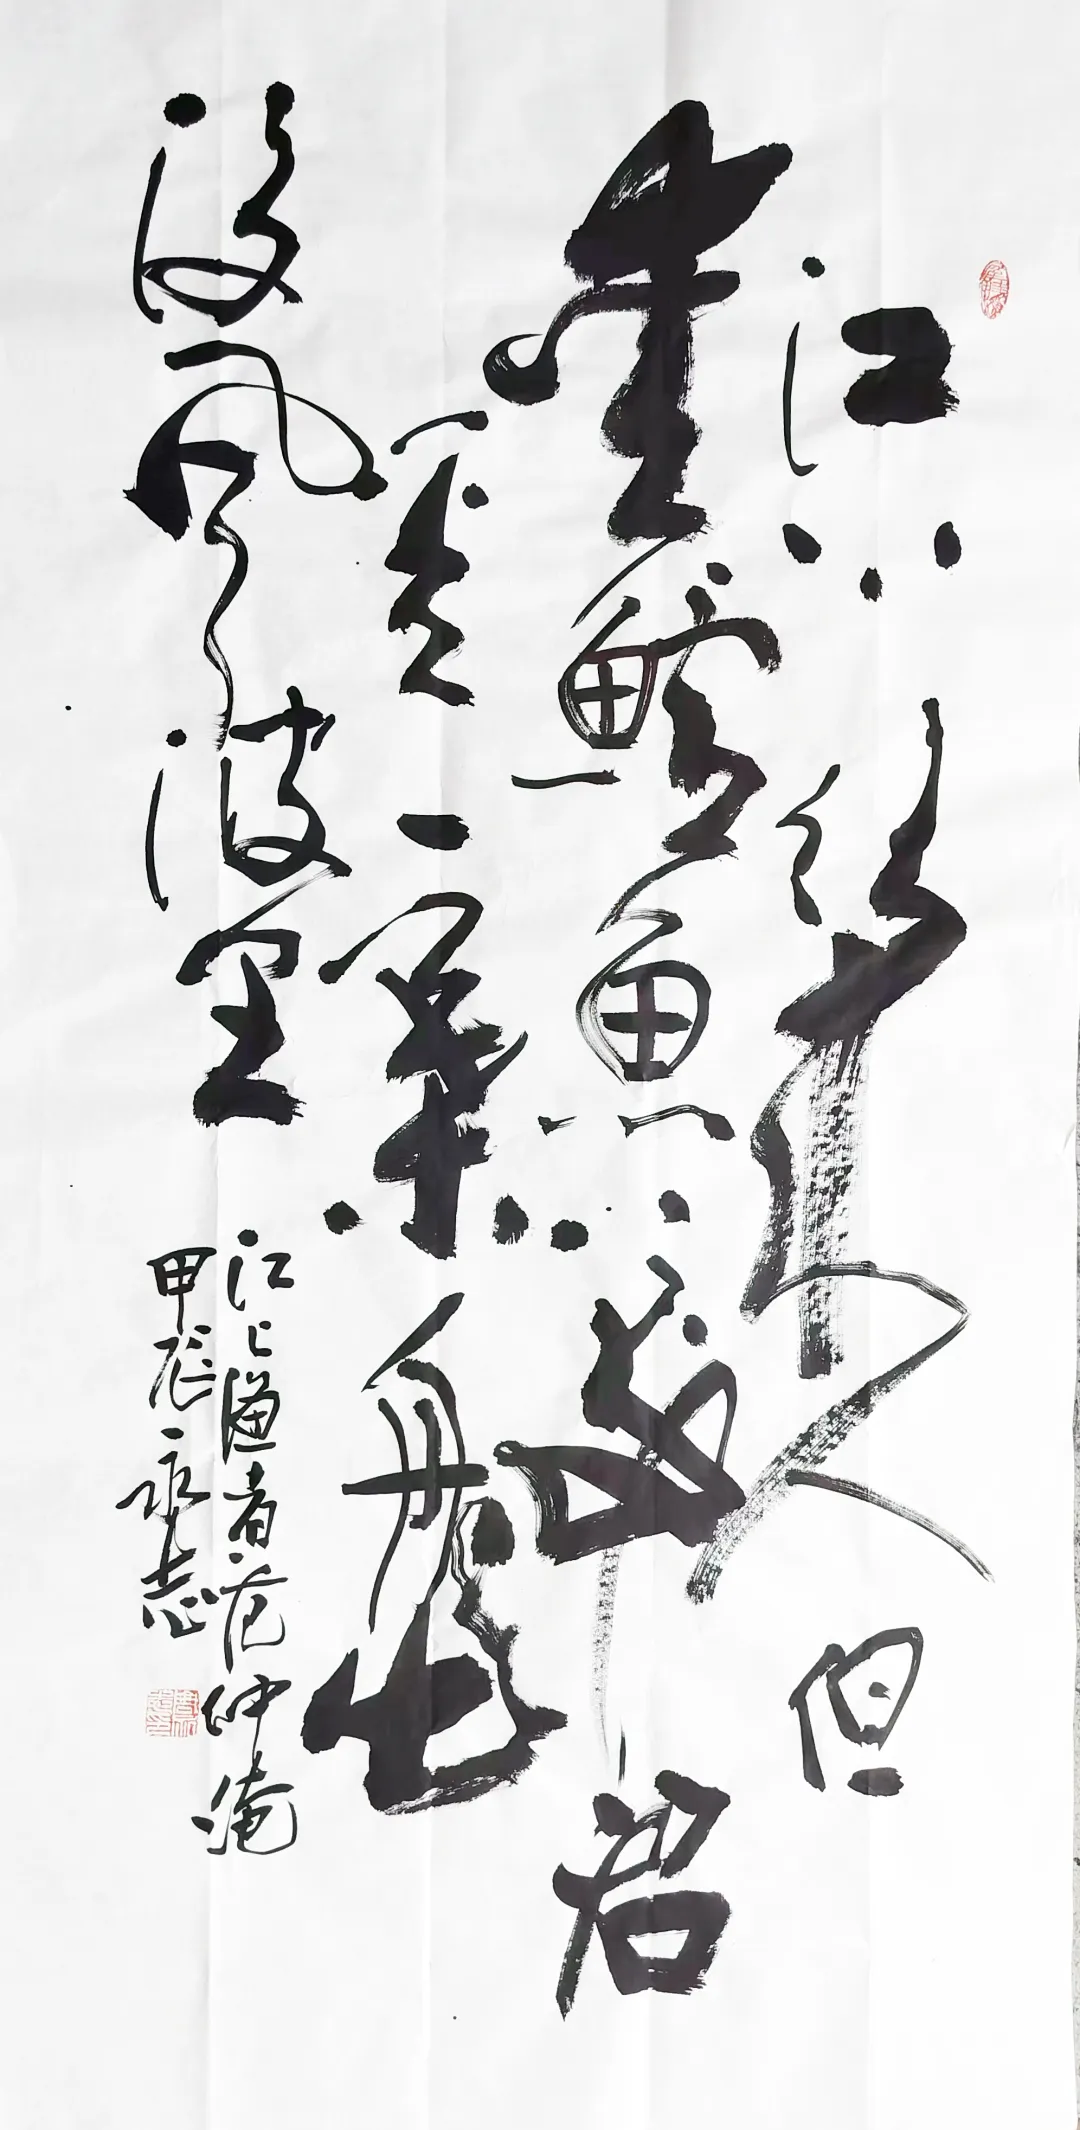 江上往来人但
愛鲈鱼美君
看一葉舟出
没风波里
江上渔者范仲淹
甲辰永志